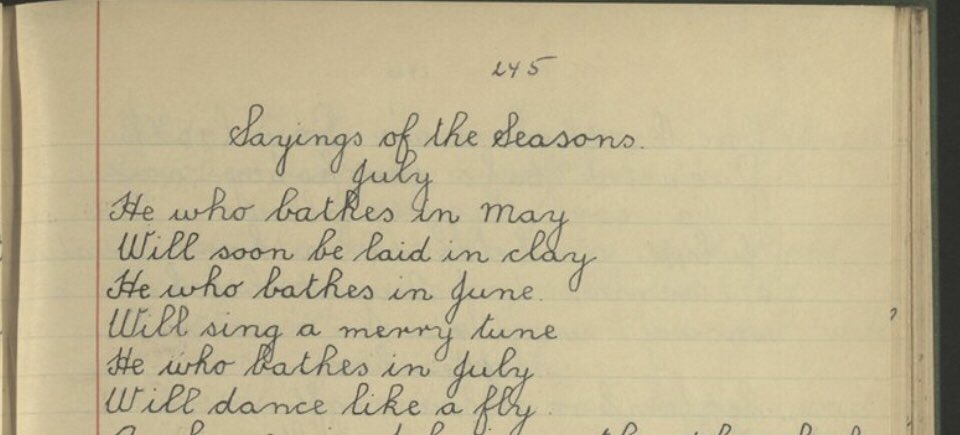 245
Sayings of the Seasons.
July
He who bathes in May
Will soon be laid in clay
He who bathes in June.
Will sing a merry tune
He who bathes in July
Will dance like a fly.